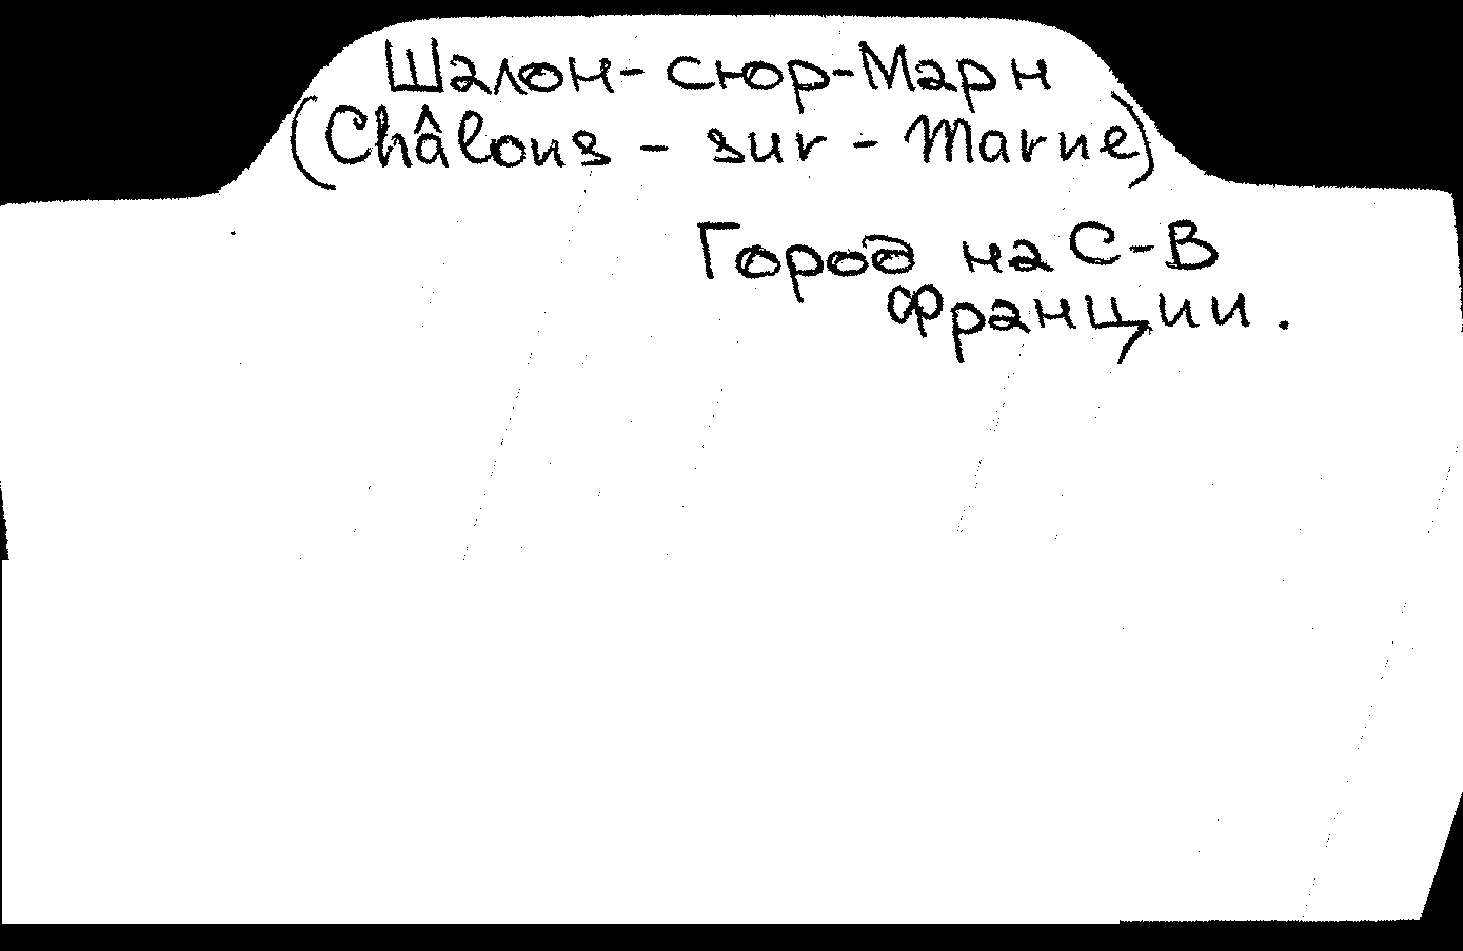 Шалон-сюр-Марн
(Châlons - sur - Marne)
Город на С-В
Франции.